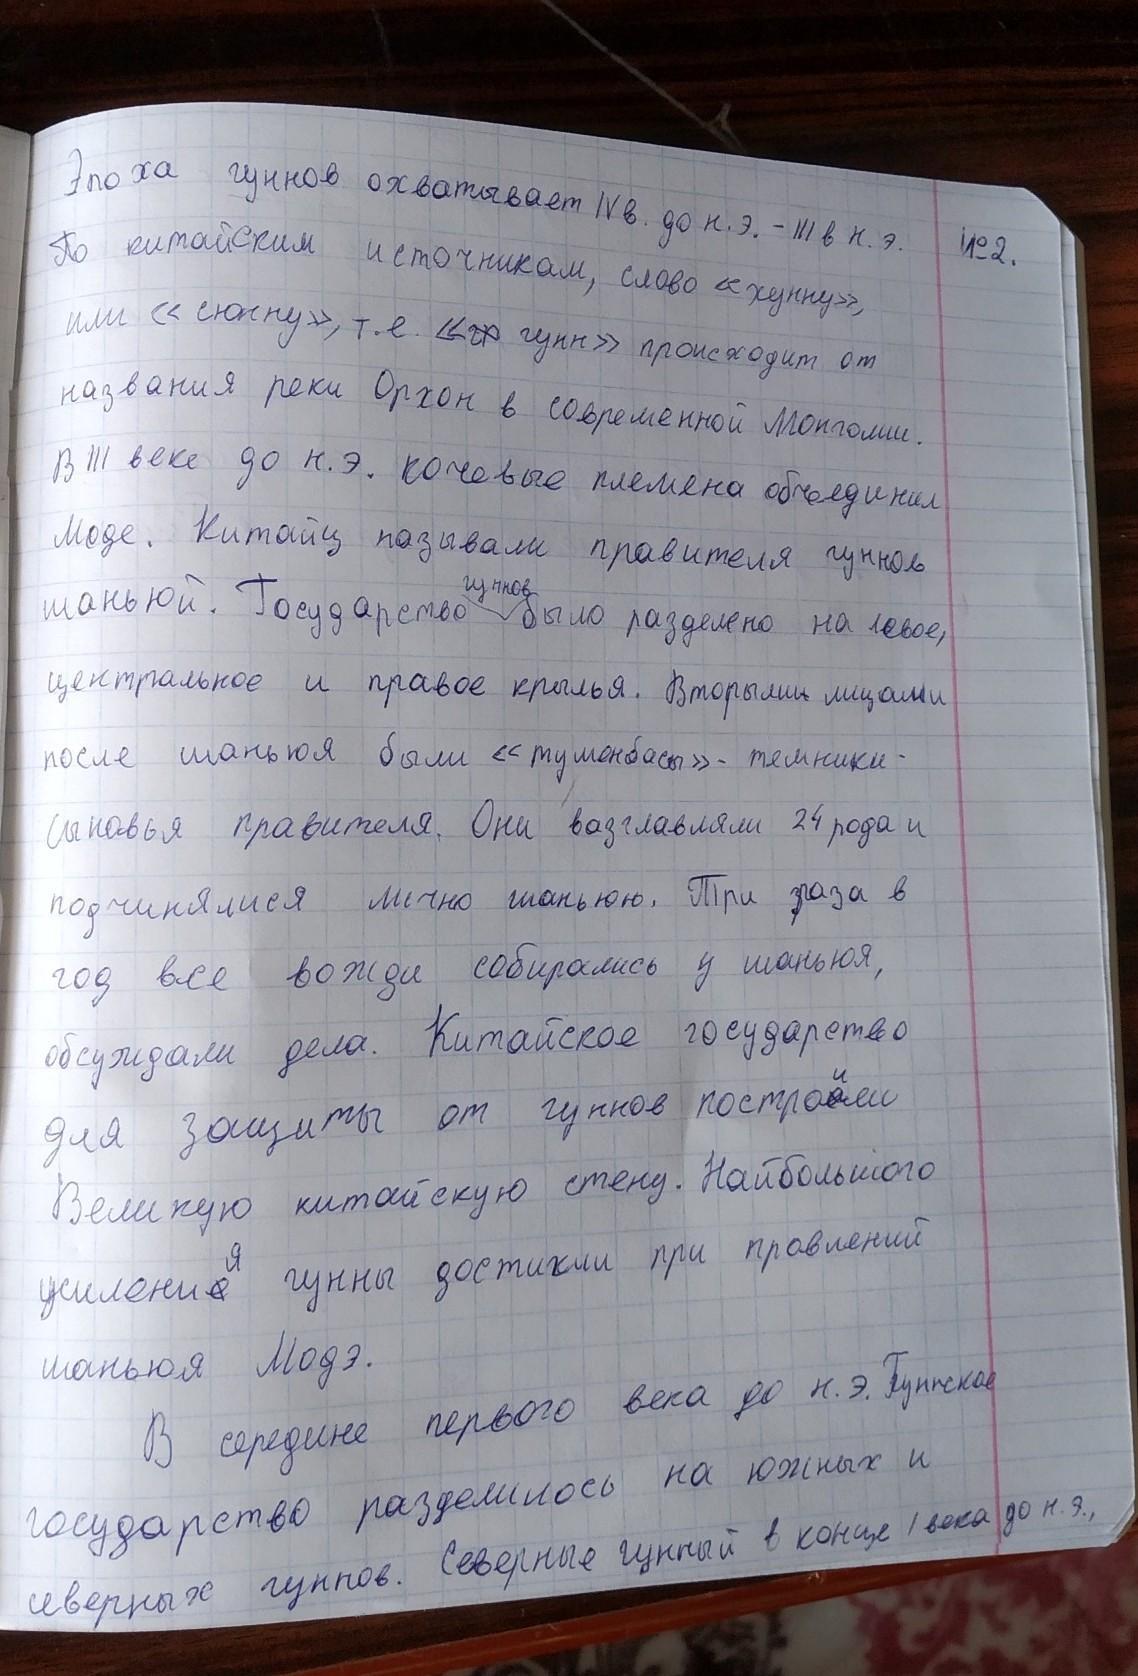 Эпоха гуннов охватывает IV в. до н.э. - III в н.э. №2.
По китайским источникам, слово «хунну»,
или «сюнну», т.е. гунн» происходит от
названия реки Орхон в современной Монголии.
В III веке до н.э. кочевые племена объединил
Моде. Китайц называли правителя гуннов
шаньюй. Государство гуннов было разделено на левое,
центральное и правое крылья. Вторыми лицами
после шаньюя были «туменбасы» - темники -
сыновья правителя. Они вазглавляли 24 рода и
подчинялися лично шаньюю. Три раза в
год все вожди собирались у шаньюя,
обсуждали дела. Китайское государство
для защиты от гуннов построили
Великую китайскую стену. Найбольшого
усиления гунны достикли при правлений
шаньюя Модэ.
В середине первого века до н.э. Гуннское
государство разделилось на южных и
северных гуннов. Северные гунный в конце I века до н.э.,